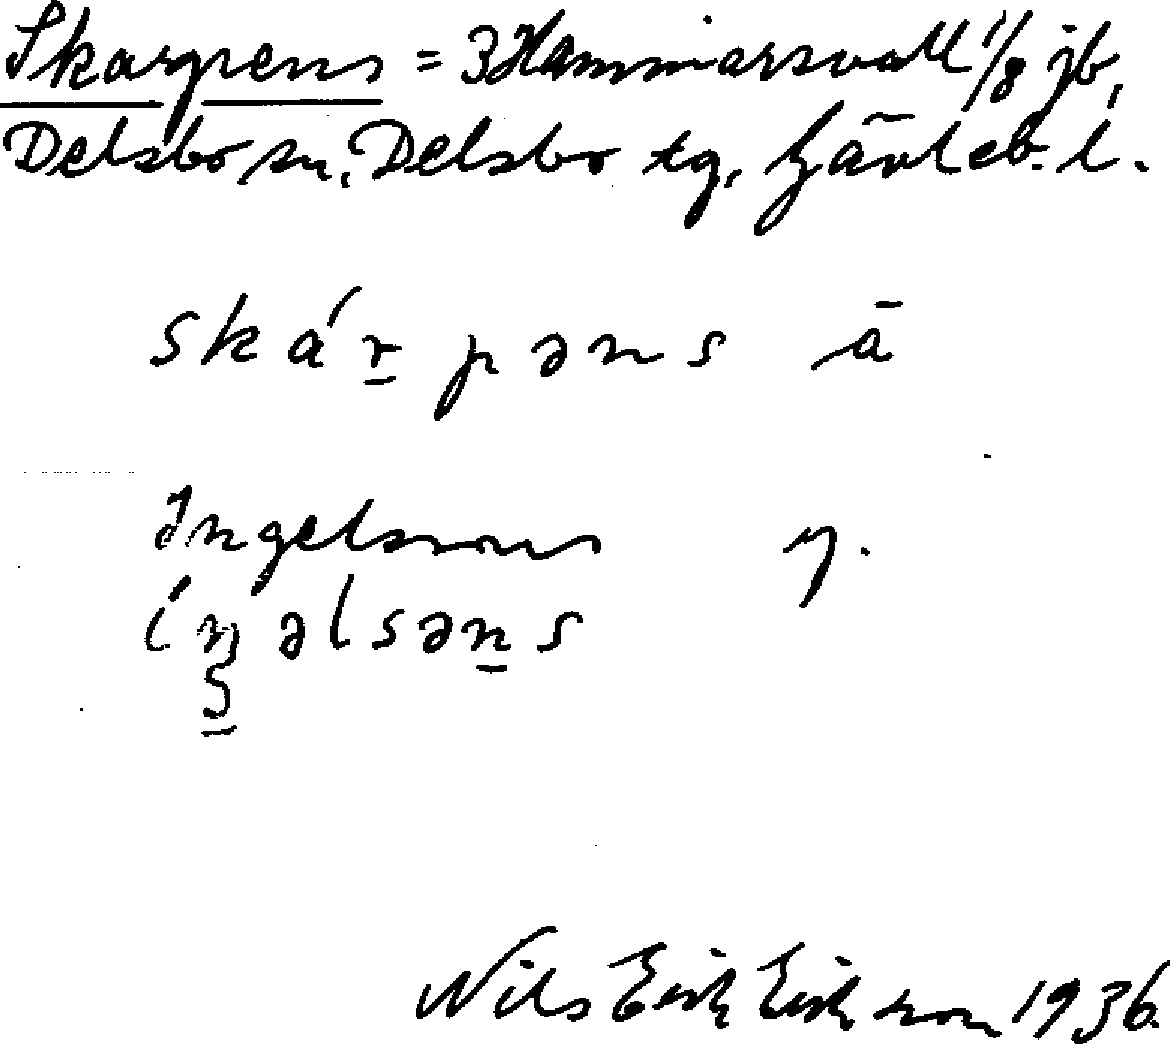 Skarpens = 3 Hammarsvall 1/8 jb,
Delsbo sn, Delsbo tg, Gävleb. l.
skár̲pəns ā
Ingelsons y.
íŋəlsən̲s
s̲
Nils Erik Erikson 1936.